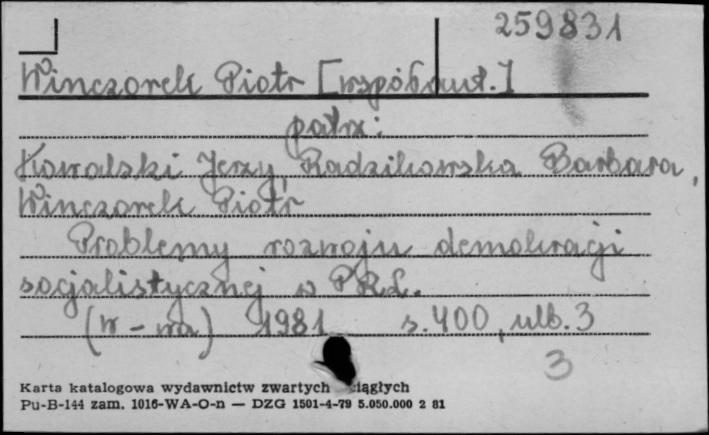 259831
Winczorek Piotr [współaut.]
patrz:
Kowalski Jerzy, Radzikowska Barbara,
Winczorek Piotr
Problemy rozwoju demokracji
socjalistycznej w PRL.
(W-wa) 1981 s. 400, ulb. 3
3
Karta katalogowa wydawnictw zwartych ciągłych
Pu-B-144 zam. 1016-WA-O-n — DZG 1501-4-79 5.050.000 2 81